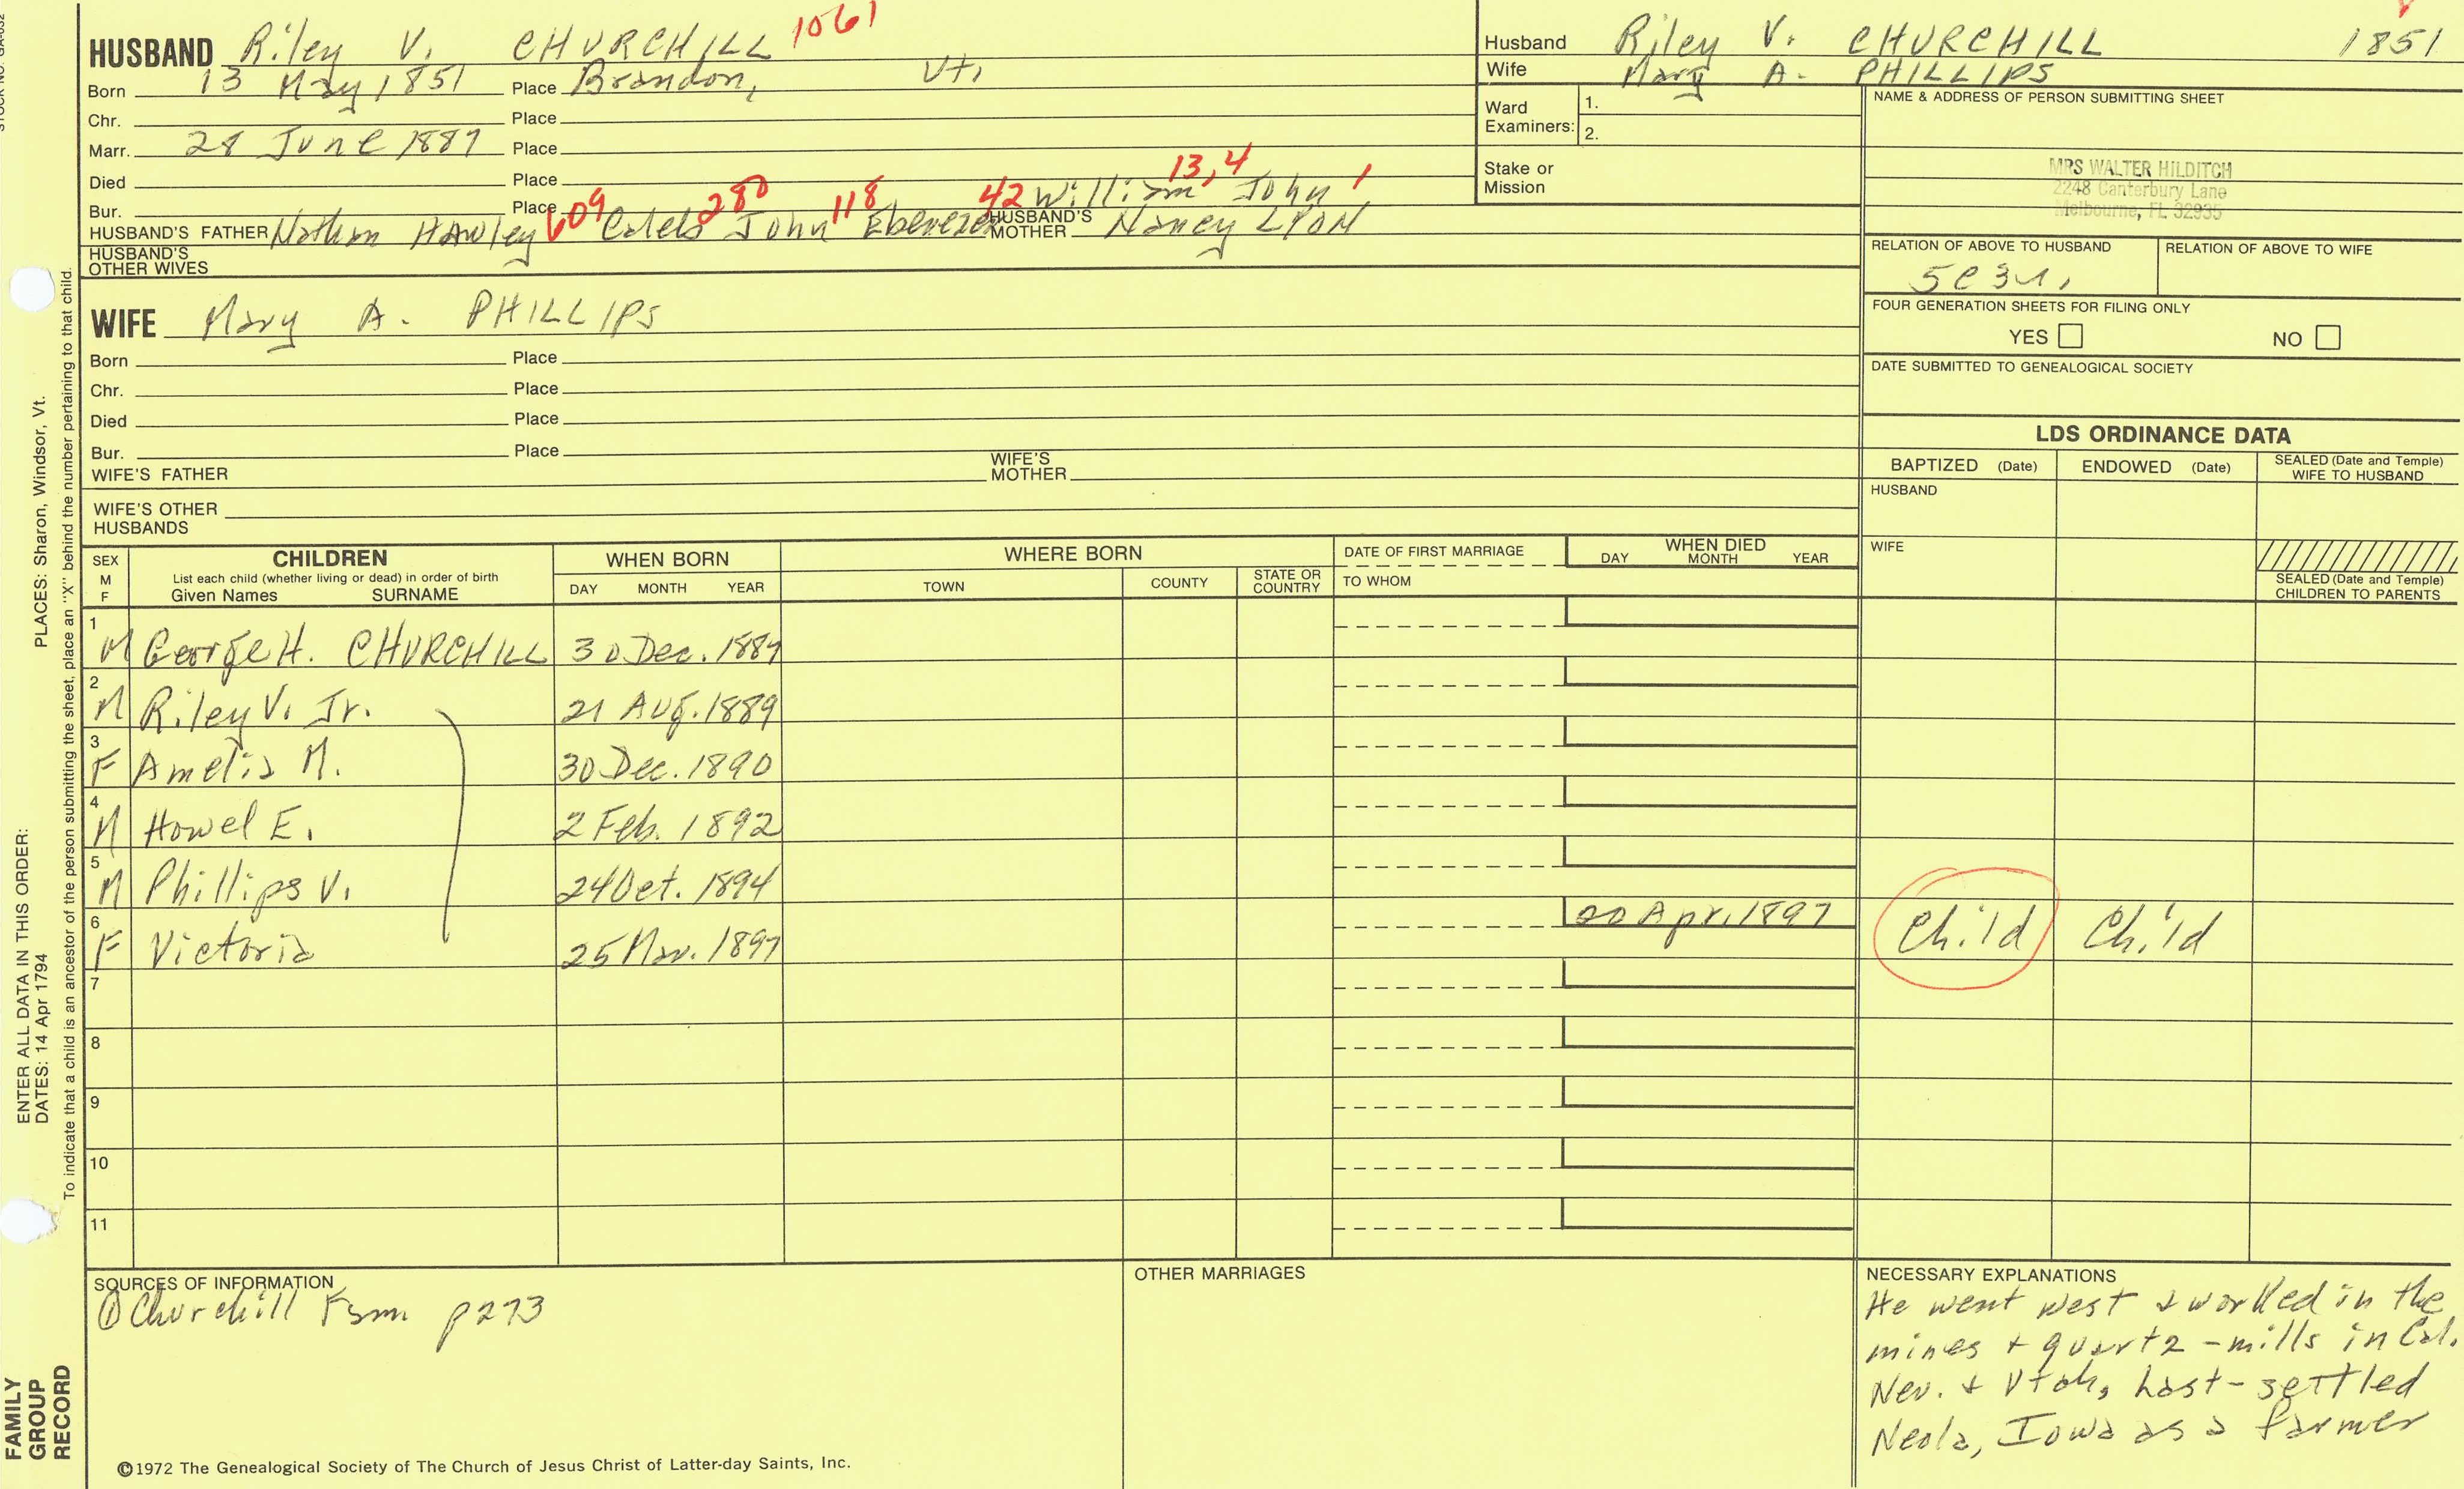 HUSBAND Riley V. CHURCHILL 1061
Born 13 May 1851 Place Brandon, Vt.
Chr. Place
Marr. 28 June 1887 Place
Died Place
Bur. Place 42 William 13,4 John 1
HUSBAND'S FATHER Nathan Hawley 609 Caleb 280 John 118 Ebenezer HUSBAND'S MOTHER Nancy LYON
HUSBAND'S OTHER WIVES
Husband Riley V. CHURCHILL 1851
Wife Mary A. PHILLIPS
Ward Examiners: 1.
2.
Stake or Mission
NAME & ADDRESS OF PERSON SUBMITTING SHEET
MRS WALTER HILDITCH
2248 Canterbury Lane
Melbourne, FL 32935
RELATION OF ABOVE TO HUSBAND RELATION OF ABOVE TO WIFE
FOUR GENERATION SHEETS FOR FILING ONLY
YES NO
DATE SUBMITTED TO GENEALOGICAL SOCIETY
WIFE Mary A. PHILLIPS
Born Place
Chr. Place
Died Place
Bur. Place
WIFE'S FATHER WIFE'S MOTHER
WIFE'S OTHER HUSBANDS
LDS ORDINANCE DATA
BAPTIZED (Date) ENDOWED (Date) SEALED (Date and Temple) WIFE TO HUSBAND
HUSBAND
WIFE
SEALED (Date and Temple) CHILDREN TO PARENTS
SEX M F
CHILDREN
List each child (whether living or dead) in order of birth
Given Names SURNAME
WHEN BORN
DAY MONTH YEAR
WHERE BORN
TOWN COUNTY STATE OR COUNTRY
DATE OF FIRST MARRIAGE
TO WHOM
WHEN DIED
DAY MONTH YEAR
1 M George H. CHURCHILL 30 Dec. 1887
2 M Riley V. Jr. 21 Aug. 1889
3 F Amelia M. 30 Dec. 1890
4 M Howel E. 2 Feb. 1892
5 M Phillips V. 24 Oct. 1894
6 F Victoria 25 Mar. 1897 20 Apr. 1897 Child Child
7
8
9
10
11
SOURCES OF INFORMATION
① Churchill Fam p273
OTHER MARRIAGES
NECESSARY EXPLANATIONS
He went west & worked in the
mines + quartz-mills in Cal.
Nev. & Utah, hast-settled
Neola, Iowa as a farmer
©1972 The Genealogical Society of The Church of Jesus Christ of Latter-day Saints, Inc.
FAMILY
GROUP
RECORD
ENTER ALL DATA IN THIS ORDER:
DATES: 14 Apr 1794 PLACES: Sharon, Windsor, Vt.
To indicate that a child is an ancestor of the person submitting the sheet, place an "X" behind the number pertaining to that child.